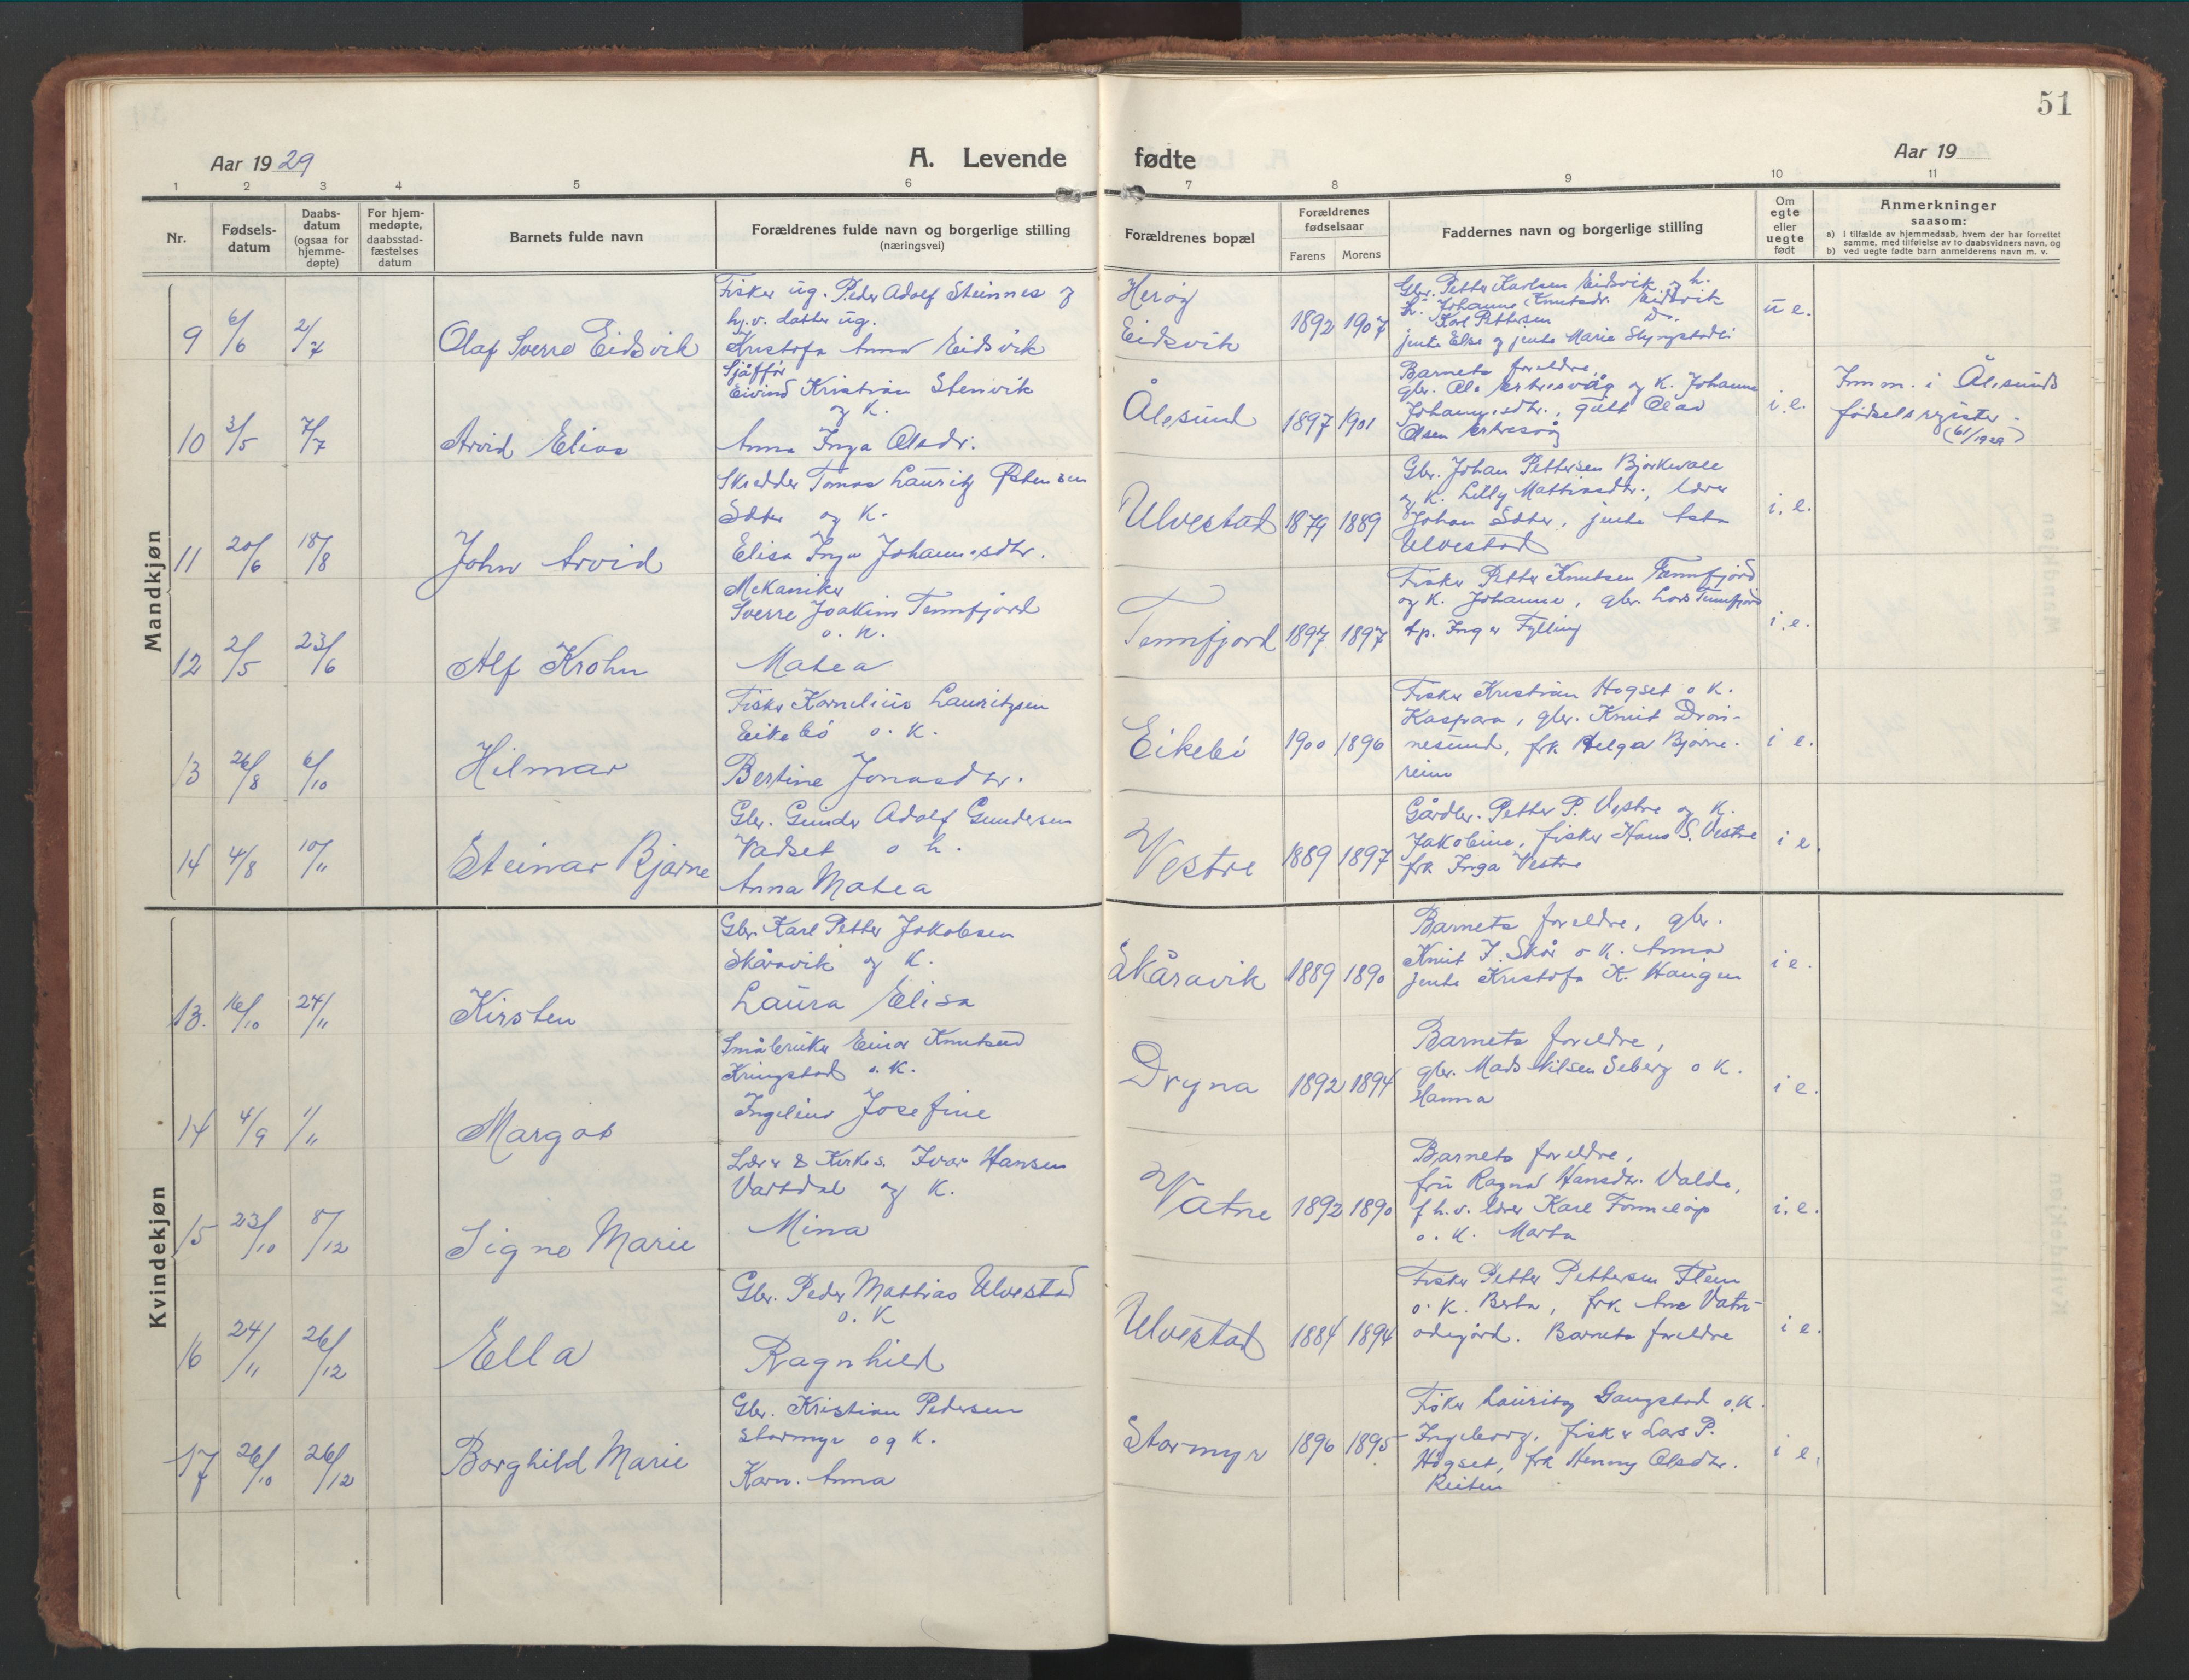 51
Aar 1929
A. Levende fødte
Aar 19
1 2 3 4 5 6 7 8 9 10 11
Nr.
Fødsels-
datum
Daabs-
datum
(ogsaa for
hjemme-
døpte)
For hjem-
medøpte,
daabsstad-
fæstelses
datum
Barnets fulde navn
Forældrenes fulde navn og borgerlige stilling
(næringsvei)
Forældrenes bopæl
Forældrenes
fødselsaar
Farens Morens
Faddernes navn og borgerlige stilling
Om
egte
eller
uegte
født
Anmerkninger
saasom:
a) i tilfælde av hjemmedaab, hvem der har forrettet
samme, med tilføielse av to daabsvidners navn, og
b) ved uegte fødte barn anmelderens navn m. v.
Mandkjøn
9 6/6 2/7 Olaf Sverre Eidsvik
Fisker ug. Peder Adolf Steinnes og
hj.v. datter ug.
Kristofa Anna Eidsvik
Herøy
Eidsvik
1892 1907
Gbr. Petter Karlsen Eidsvik og h.
k. Johanne Knutsdr. Eidsvik
Karl Pettersen Do.
jente Else og jente Marie
u e.
10 3/5 7/7 Arvid Elias
Sjåffør
Eivind Kristian Stenvik
og K.
Anna Inga Olsdr.
Ålesund
1897 1901
Barnets foreldre,
gbr. Ole Ertresvåg og K. Johanne
Johannesdtr., gutt Olav
Olsen Ertresvåg
i. e.
Innm. i Ålesunds
fødselsregister.
(61/1929)
11 20/6 18/8 John Arvid
Skredder Tomas Lauritz Østensen
Sæter og K.
Elisa Inga Johannesdtr.
Ulvestad
1879 1889
Gbr. Johan Pettersen Bjørkevoll
og K. Lilly Mattiasdtr., lærer
Johan Sæter, jente Asta
Ulvestad
i. e.
12 2/5 23/6 Alf Krohn
Mekaniker
Sverre Joakim Tennfjord
o. K.
Matea
Tennfjord
1897 1897
Fisker Petter Knutsen Tennfjord
og K. Johanne, gbr. Lars Tennfjord
tp. Inga Fylling
i. e.
13 26/8 6/10 Hilmar
Fisker Kornelius Lauritzsen
Eikebø o. K.
Bertine Jonasdtr.
Eikebø
1900 1896
Fisker Kristian Hogset o K.
Kaspara, gbr. Knut Dron-
nesund, frk Helga Bjørne-
reim
i e.
14 4/8 10/11 Steinar Bjarne
Gbr. Gunder Adolf Gundersen
Vadset o h.
Anna Matea
Vestre
1889 1897
Gårdbr. Petter P. Vestre og K.
Jakobine, fisker Hans S. Vestre
frk Inga Vestre
i e.
Kvindekjøn
13. 16/10 24/11 Kirsten
Gbr. Karl Petter Jakobsen
Skåravik og K.
Laura Elisa
Skåravik
1889 1890
Barnets foreldre, gbr.
Knut J. Skår o K. Anna
jente Kristofa K. Haugen
i e.
14 4/9 1/11 Margot
Småbruker Einar Knutsen
Kringstad o. K.
Ingeline Josefine
Dryna
1892 1894
Barnets foreldre,
gbr. Mads Nilsen Seberg o K.
Hanna
i e.
15 23/10 8/12 Signe Marie
Lærer & Kirkes. Ivar Hansen
Vartdal og K.
Mina
Vatne
1892 1890
Barnets foreldre,
fru Ragna Hansdtr. Valde,
f.h.v. lærer Karl
o. K. Marta
i. e.
16 24/11 26/12 Ella
Gbr. Peder Mattias Ulvestad
o. K
Ragnhild
Ulvestad
1884 1894
Fisker Petter Pettersen Flem
o. K. Berta, frk Ane Vatne-
ødegård. Barnets foreldre
i e.
17 26/10 26/12 Borghild Marie
Gbr. Kristian Pedersen
Stormyr og K.
Karn. Anna
Stormyr
1896 1895
Fisker Lauritz Gangstad o.K.
Ingeborg, fisker Lars P.
Høgset, frk Henny Olsdtr.
Reiten
i e.